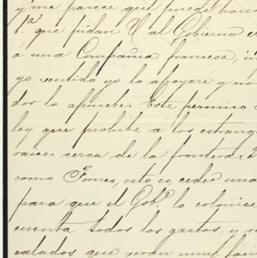 y me parece que puede hacer
1ª. que pidan U al Gobierno
a una Compañia francesa,
yo sentido yo la apoyaré y
dor lo apruebe. Este permiso
ley que prohibe a los estrang
raices cerca de la frontera.
como Tomes, esto es, ceder una
para que el Gobº. lo colonice
cuenta todos los gastos, y
calados que seran muy